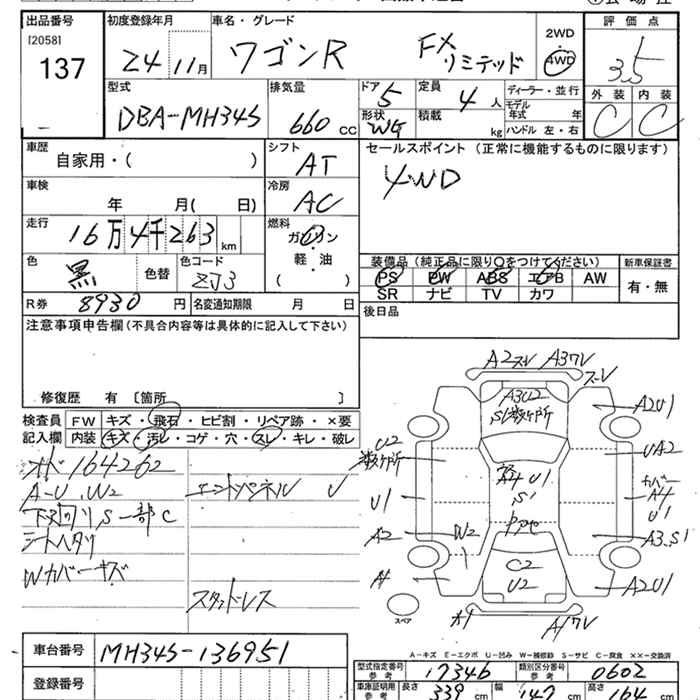 出品番号 初度登録年月 車名・グレード 2WD 評価点
[2058] 137 24年 11月 ワゴンR FX リミテッド 4WD 3.5
型式 排気量 ドア 定員 ディーラー・並行 外装 内装
DBA-MH34S 660 CC 5 4人 モデル年式 年 C C
形状 WG 積載 kg ハンドル 左・右
車歴 シフト セールスポイント (正常に機能するものに限ります)
自家用・( ) AT 4WD
車検 冷房
年 月( 日) AC
走行 燃料
16万4千263km ガソリン・軽・油 ( )
色 色コード 装備品 (純正品に限り○をつけてください) 新車保証書
黒 色替 ZJ3 PS PW ABS エアB AW 有・無
SR ナビ TV カワ
R券 8930円 名変通知期限 月 日 後日品
注意事項申告欄 (不具合内容等は具体的に記入して下さい)
修復歴 有 [箇所 ]
検査員記入欄 FW キズ・飛石・ヒビ割・リペア跡・×要
内装 キズ・汚レ・コゲ・穴・スレ・キレ・破レ
164262
A-U W2 U
下回り S一部C
シートヘタリ
Wカバーキズ
スタッドレス
A2 A3
A3U2
S1数ヶ所
A2U1
U2 数ヶ所
UA2
A4 U1
S1
カバー A4 U1
U1
A2
W2
A3.S1
C2
U2
A2U1
スペア
A-キズ E-エクボ U-凹み W-補修跡 S-サビ C-腐食 ××-交換済
車台番号 MH34S-136951
型式指定番号 参考 17346 類別区分番号 参考 0602
登録番号
車庫証明用 参考 長さ 339 cm 幅 147 cm 高さ 164 cm